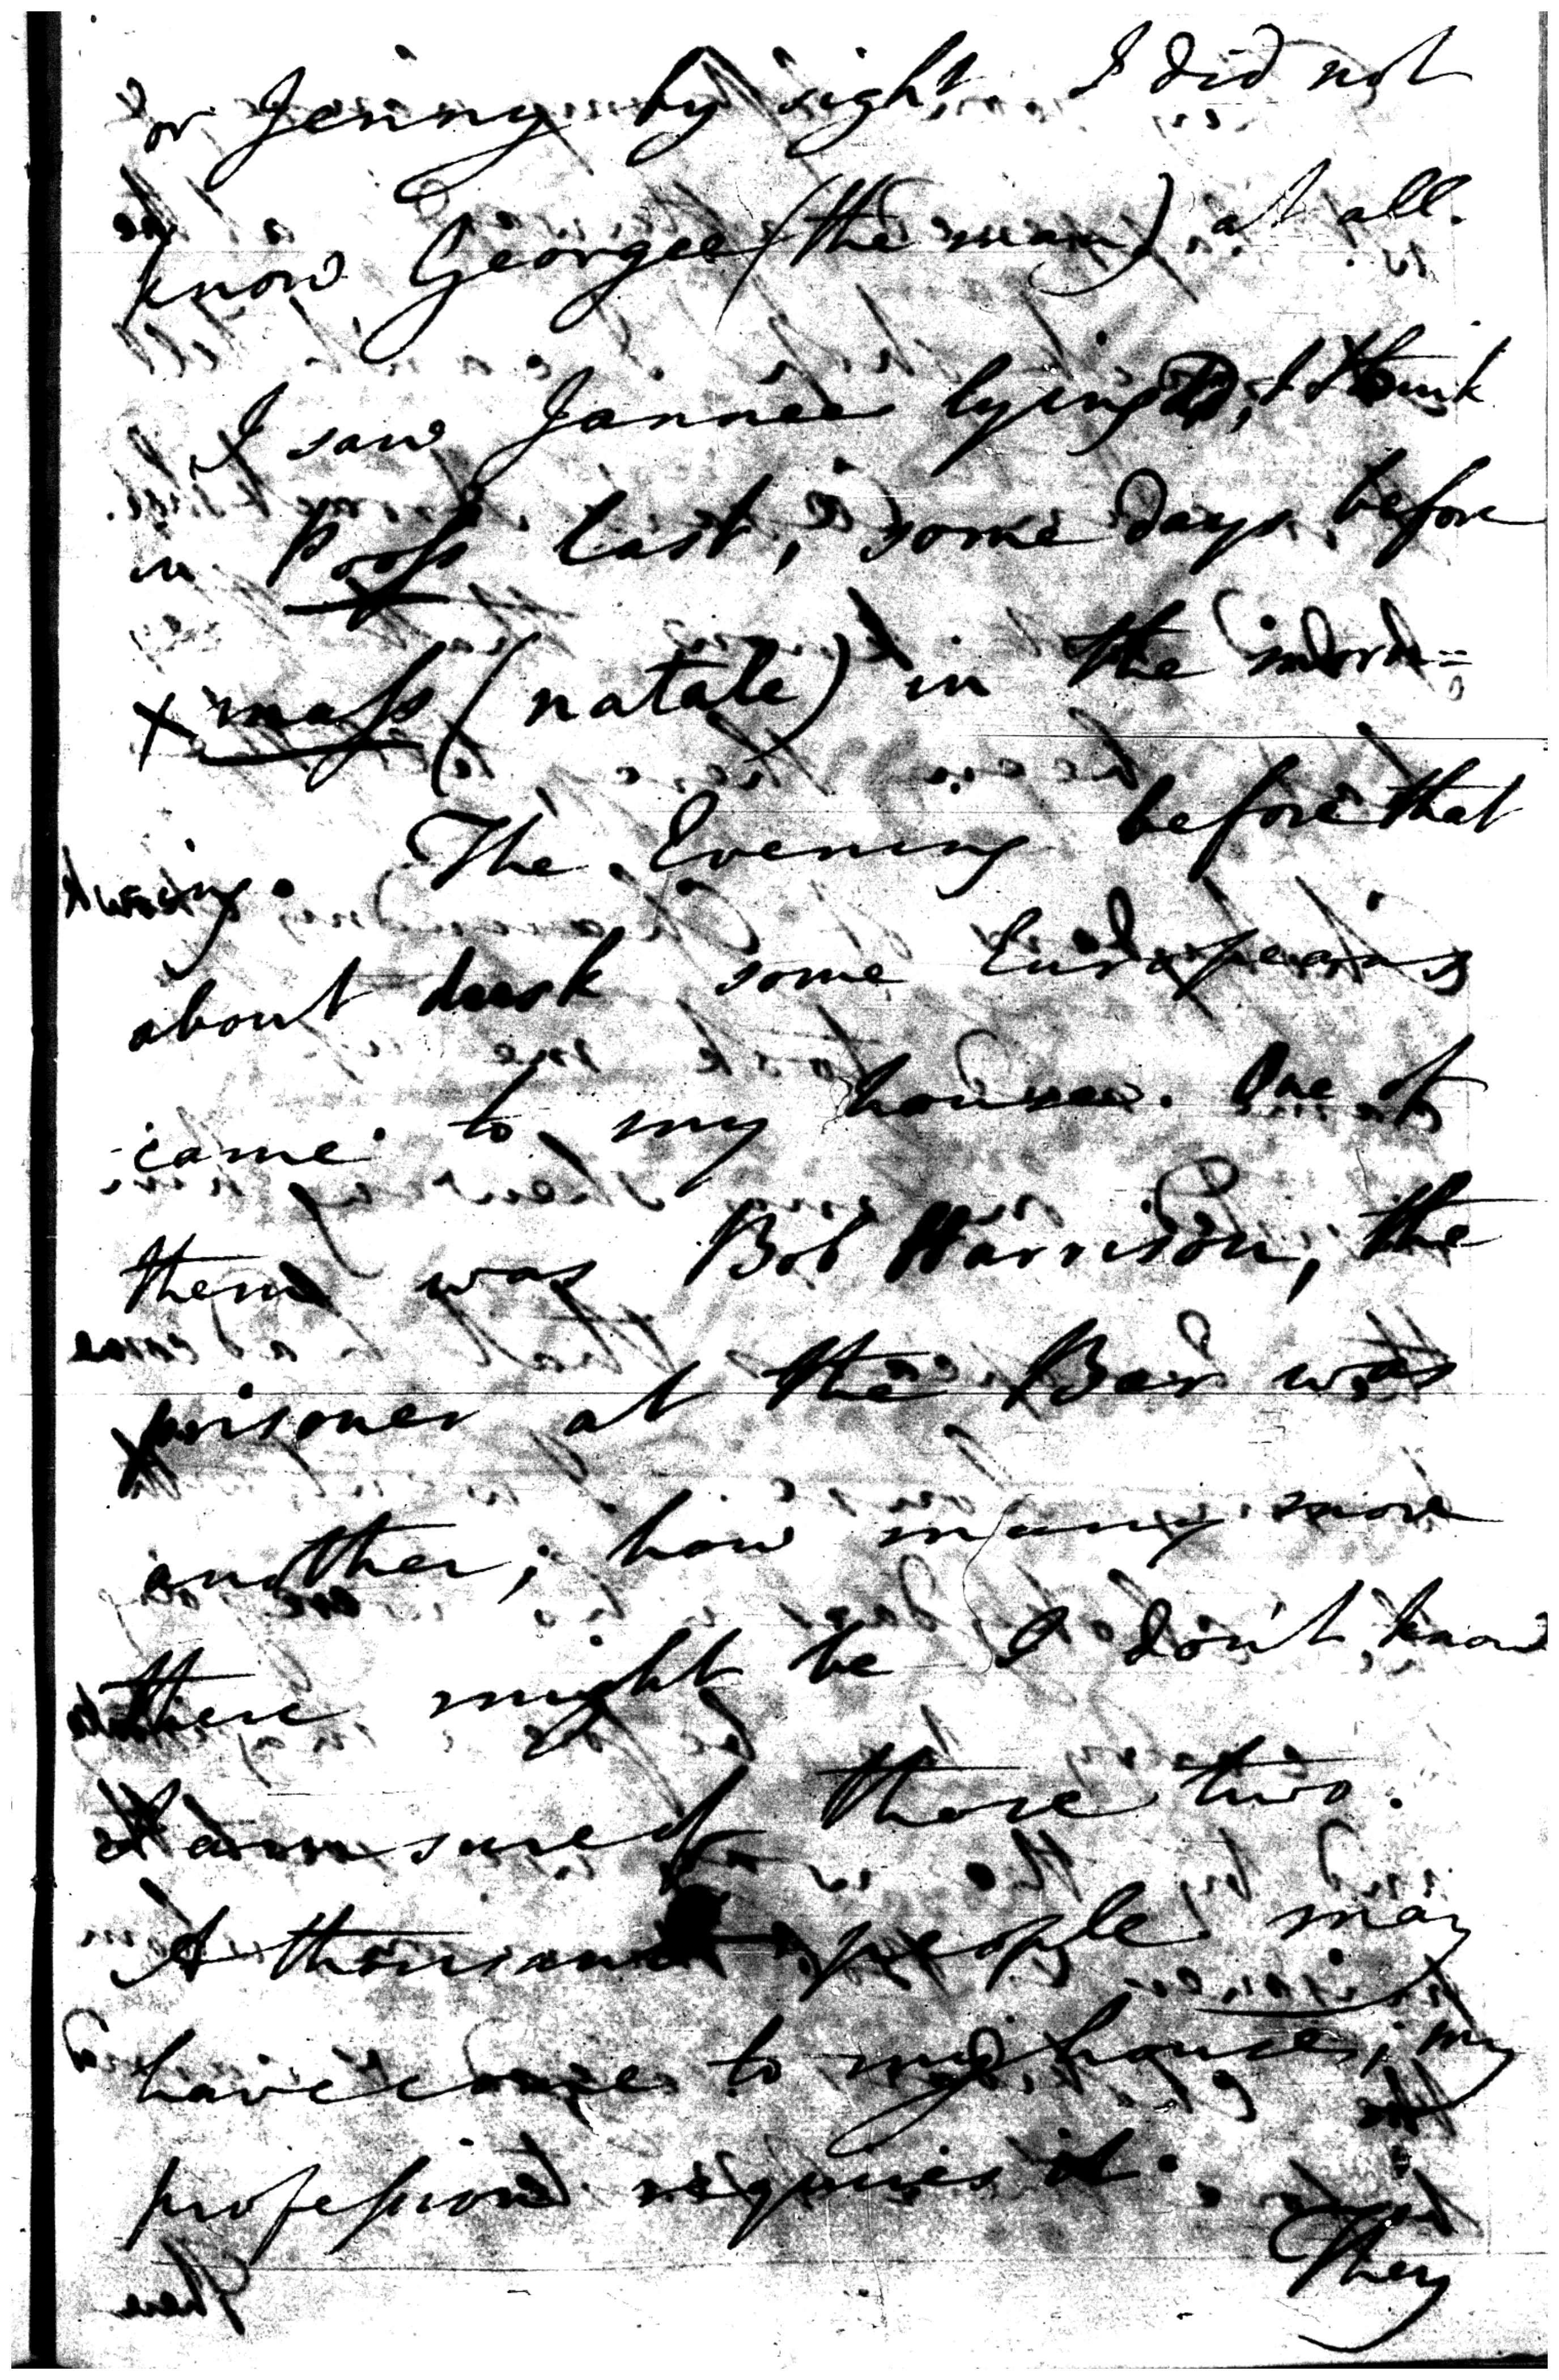 or Jenny by sight I did not
know Georgee (the man) at all.
I saw Jannee lying, I think
in Pooss last, some days before
Xmass (natale) in the morn=
ing. The Evening before that
about dusk some Europeans
came to my house. One of
them was Bob Harrison, the
prisoner at the Bar was
another; how many more
there might be I don't know
I am sure of those two.
A thousand people may
have come to my house; my
profession requires it.
They